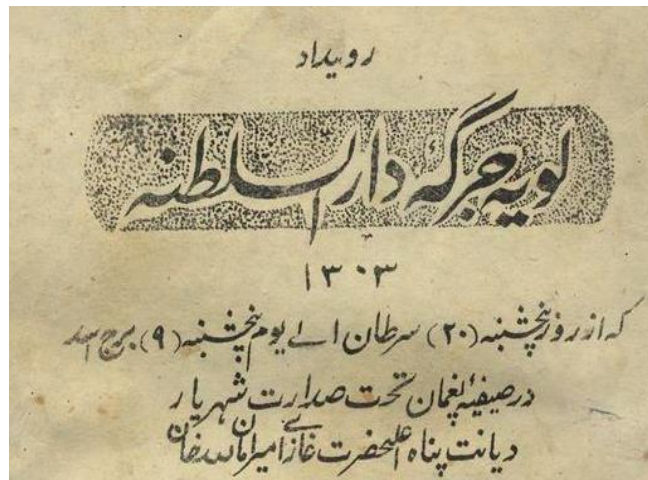 رویداد
لویه جرگۀ دارالسلطنه
۱۳۰۳
که از روز پنجشنبه (۲۰) سرطان الے یوم پنجشنبه (۹) برج اسد
در صیفیۀ پغمان تحت صدارت شهریار
دیانت پناه اعلیحضرت غازے امیر امان الله خان